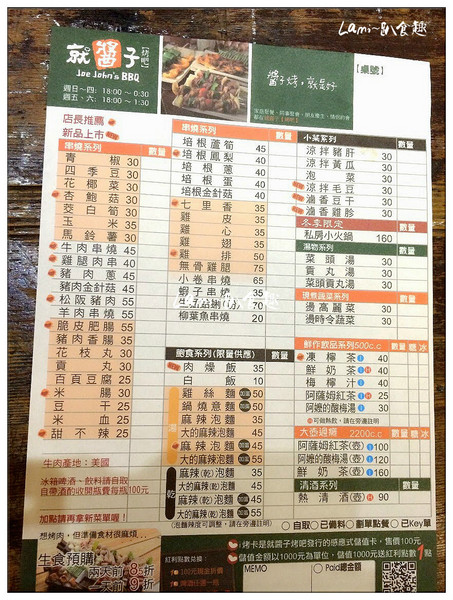 Lami~趴食趣
就醬子【烤吧】
Joe John's BBQ
週日~四: 18:00 ~ 0:30
週五、六: 18:00 ~ 1:30
醬子烤,就是好
【桌號】
店長推薦
新品上市
串燒系列 數量
青椒 30
四季豆 30
花椰菜 30
杏鮑菇 30
茭白筍 30
玉米 35
馬鈴薯 30
牛肉串燒 45
雞腿肉串 40
豬肉蔥 45
豬肉金針菇 45
松阪豬肉 55
羊肉串燒 55
脆皮肥腸 55
豬肉香腸 35
花枝丸 30
貢丸 30
百頁豆腐 25
米腸 30
豆干 25
米血 25
甜不辣 25
牛肉產地:美國
冰箱啤酒、飲料請自取
自帶酒酌收開瓶費每瓶100元
加點請再拿新菜單喔!
想烤肉,但準備食材很麻煩...
生食預購
兩天前 8折
一天前 9折
串燒系列 數量
培根蘆筍 45
培根鳳梨 40
培根蔥 40
培根蛋 40
培根金針菇 40
七里香 35
雞皮 35
雞心 35
雞翅 35
雞排 50
無骨雞腿 75
小卷串燒 60
蝦子串燒 35
柳葉魚串燒 20
飽食系列(限量供應) 數量
肉燥飯 35
白飯 10
湯
雞絲麵 50
鍋燒意麵 50
麻辣泡麵 45
大的麻辣泡麵 55
麻辣泡麵 45
大的泡麵 55
乾
麻辣(乾)泡麵 45
大的麻辣(乾)泡麵 55
麻醬(乾)泡麵 45
大的麻醬(乾)泡麵 55
(泡麵辣度可調整,請在旁邊註明)
小菜系列 數量
涼拌豬肝 30
涼拌黃瓜 30
泡菜 30
涼拌毛豆 30
滷香豆干 30
滷香雞胗 30
冬季限定
私房小火鍋 160
湯物系列 數量
菜頭湯 30
貢丸湯 30
菜頭貢丸湯 30
現煮蔬菜系列 數量
燙高麗菜 30
燙時令蔬菜 30
鮮作飲品系列500c.c 數量 糖 冰
凍檸茶 40
鮮奶茶 40
梅檸汁 40
阿薩姆紅茶 25
阿嬤的酸梅湯 30
可做熱飲,請在旁邊註明
大壺過癮 2200c.c 數量 糖 冰
阿薩姆紅茶(壺) 100
阿嬤的酸梅湯(壺) 120
鮮奶茶(壺) 160
清酒系列 數量
熱清酒(壺) H 90
○自取○已備料○劃單點餐○已Key單
烤卡是就醬子烤吧發行的感應式儲值卡,售價100元
儲值金額以1000元為單位,儲值1000元送紅利點數1點
紅利點數兌換:
MEMO
Paid總金額